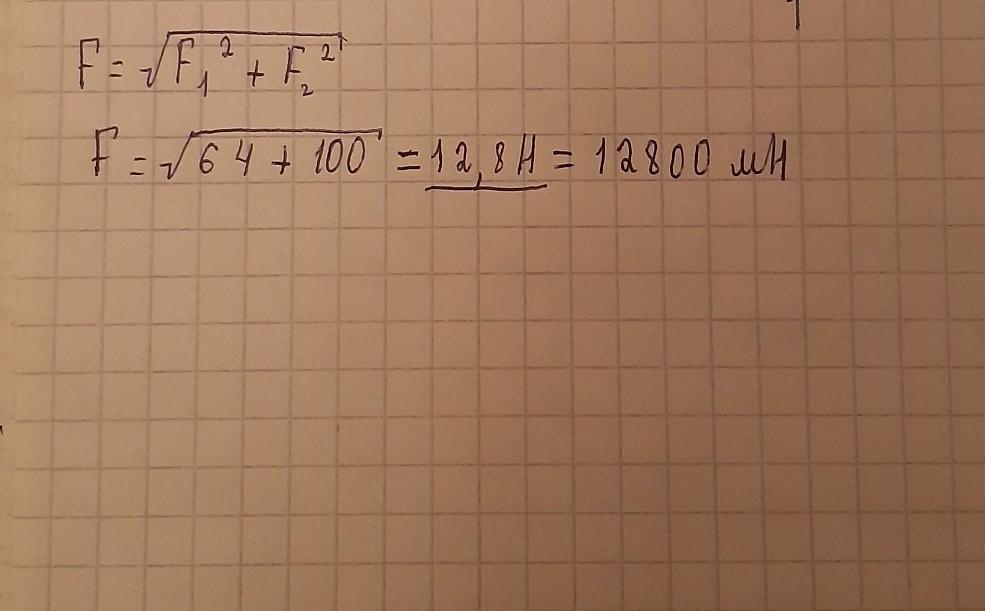 F = √F₁² + F₂²
F = √64 + 100 = 12,8 Н = 12800 мН